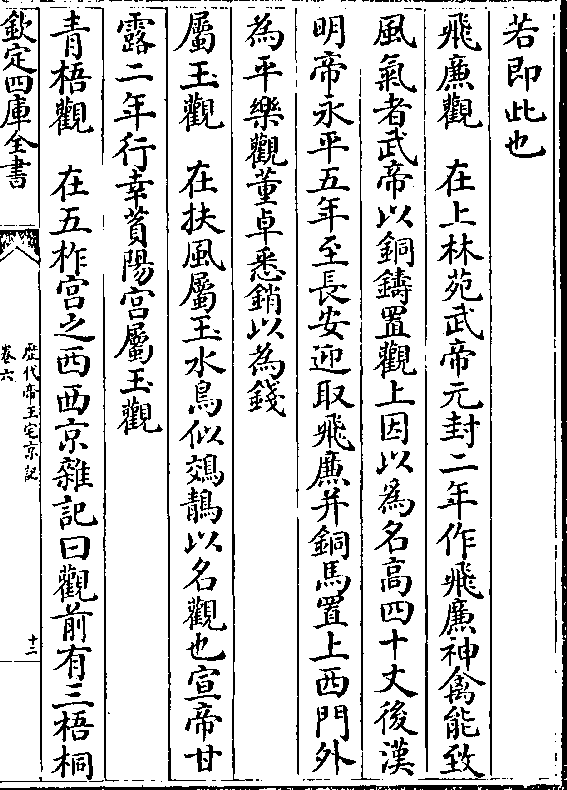 若即此也
飛廉觀　在上林苑武帝元封二年作飛廉神禽能致
風氣者武帝以銅鑄置觀上因以爲名高四十丈後漢
明帝永平五年至長安迎取飛廉并銅馬置上西門外
為平樂觀董卓悉銷以為錢
屬玉觀　在扶風屬玉水鳥似鵁鶄以名觀也宣帝甘
露二年行幸萯陽宮屬玉觀
青梧觀　在五柞宮之西西京雜記曰觀前有三梧桐
欽定四庫全書
歷代帝王宅京記
卷六
十二